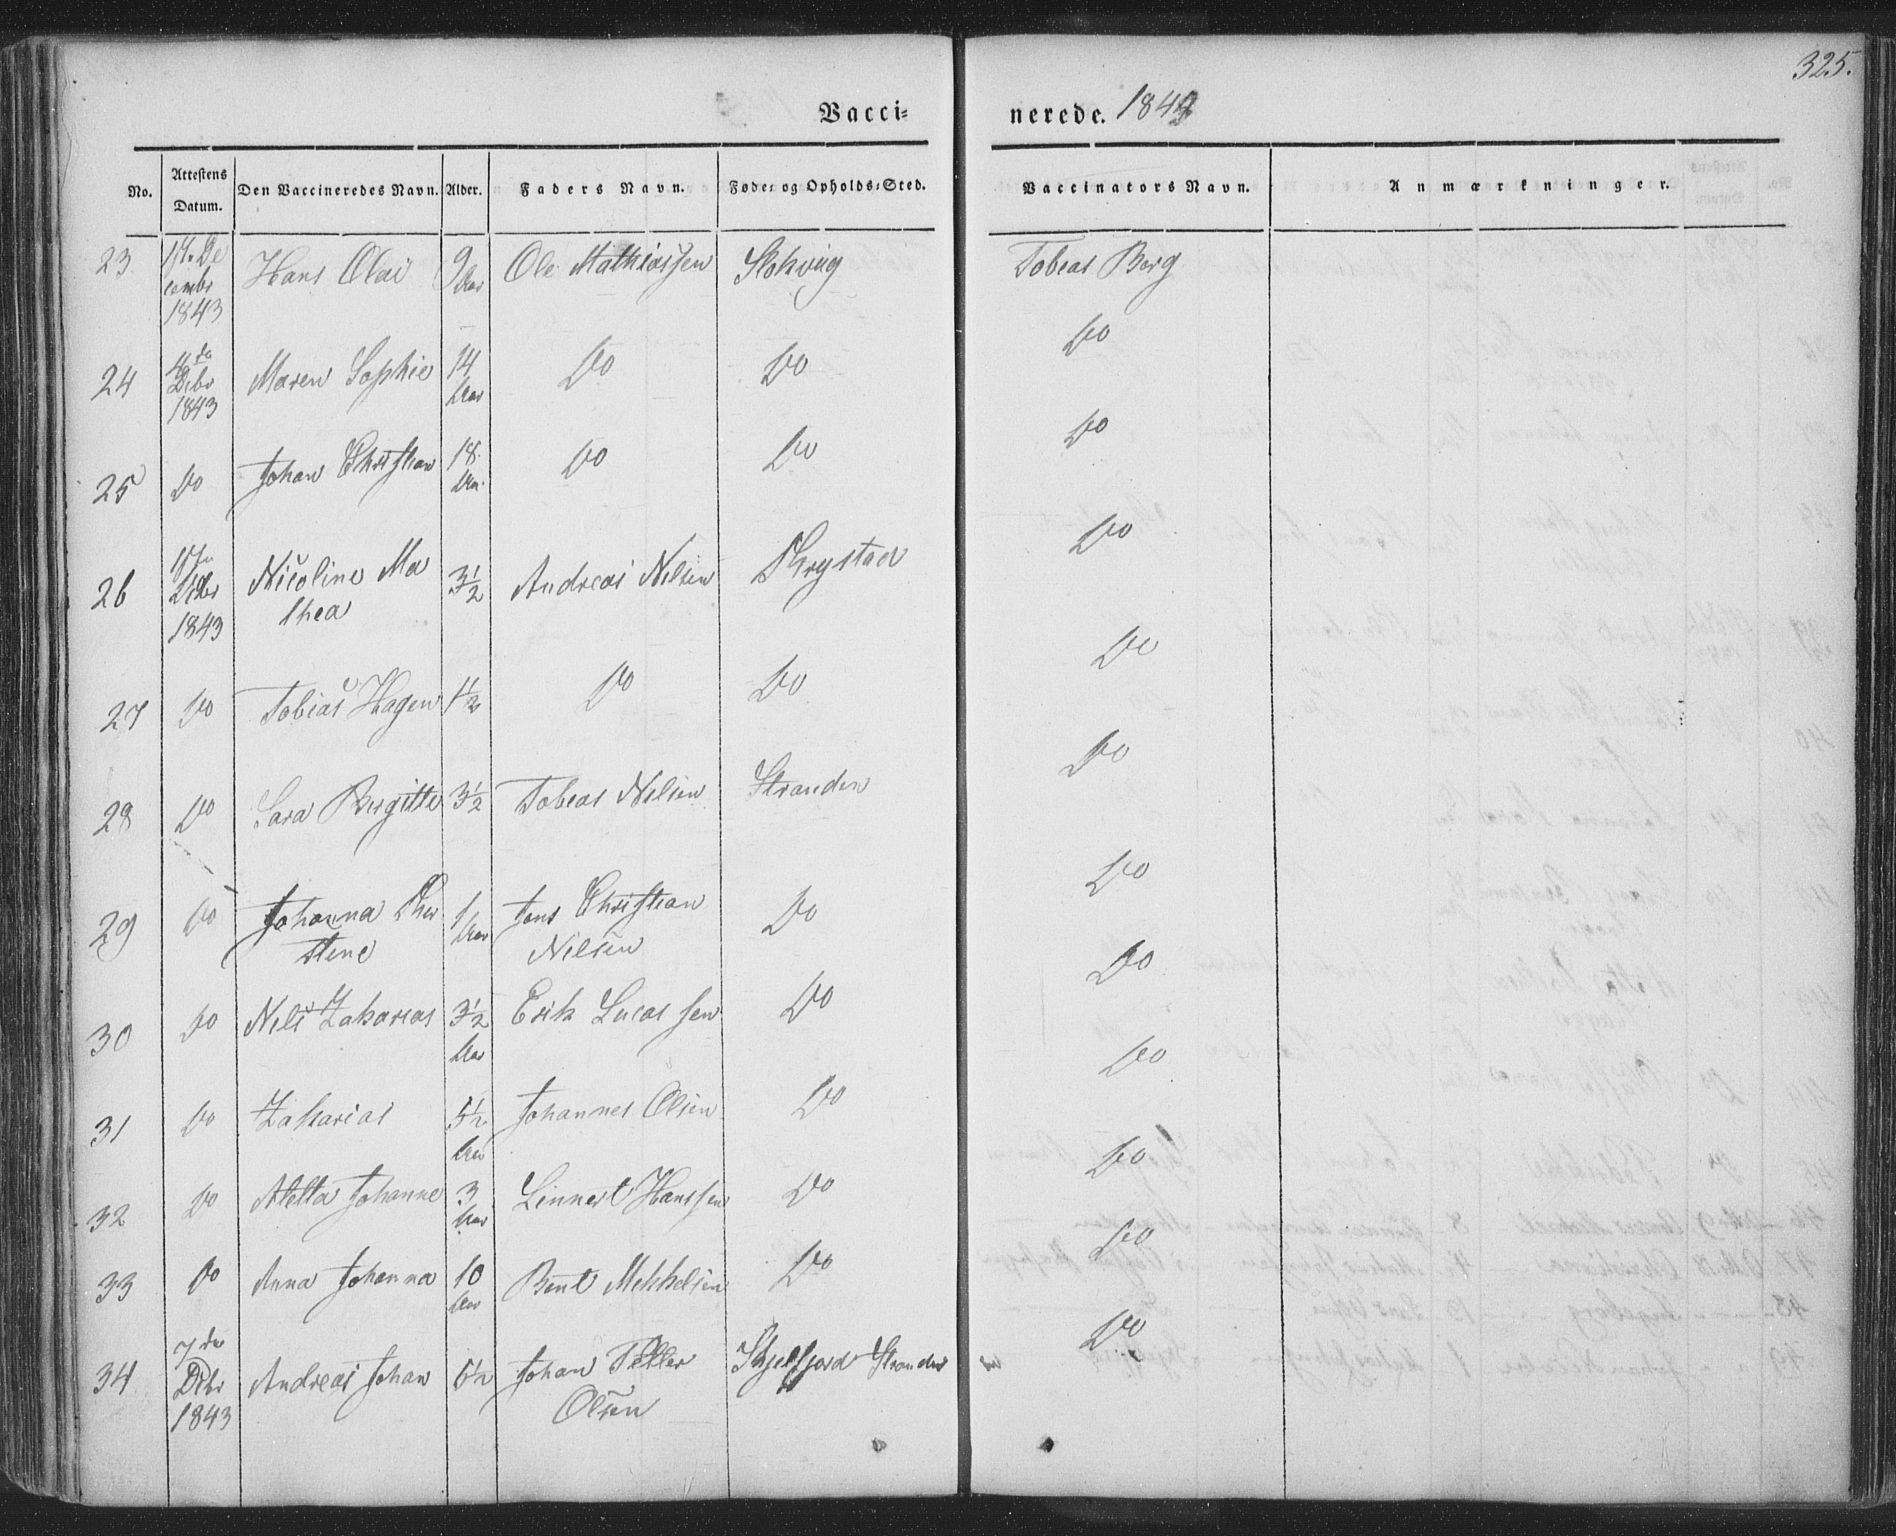 325.
Vacci=
nerede. 1849
No. Attestens Datum. Den Vaccineredes Navn. Alder. Faders Navn. Føde= og Opholds=Sted. Vaccinators Navn. Anmærkninger.
23 1ste De cembr 1843 Hans Olai 9 Aar Ole Mathiassen Tobeas Berg
24 4de Dcbr 1843 Maren Sophie 14 Aar Do Do Do
25 Do Johan Christian 18 Aar Do Do Do
26 Dcbr 1843 Nicoline Ma thea 3½ Andreas Nilsen Do
27 Do Tobias Hagen 1½ Do Do Do
28 Do Sara Birgitte 3½ Tobeas Nilsen Stranden Do
29 Do Johanna stine 1 Aar Jens Christian Nilsen Do Do
30 Do Nils Zakarias 3½ Aar Erik Lucassen Do Do
31 Do Zakarias 5½ Aar Johannes Olsen Do Do
32 Do Aletta Johanne 3 Aar Linnert Hanssen Do Do
33 Do Anna Johanna 10 Aar Bent Mekkelsen Do Do
34 7de Dcbr 1843 Andreas Johan 6½ Johan Olsen Skjelfjord Stranden Do